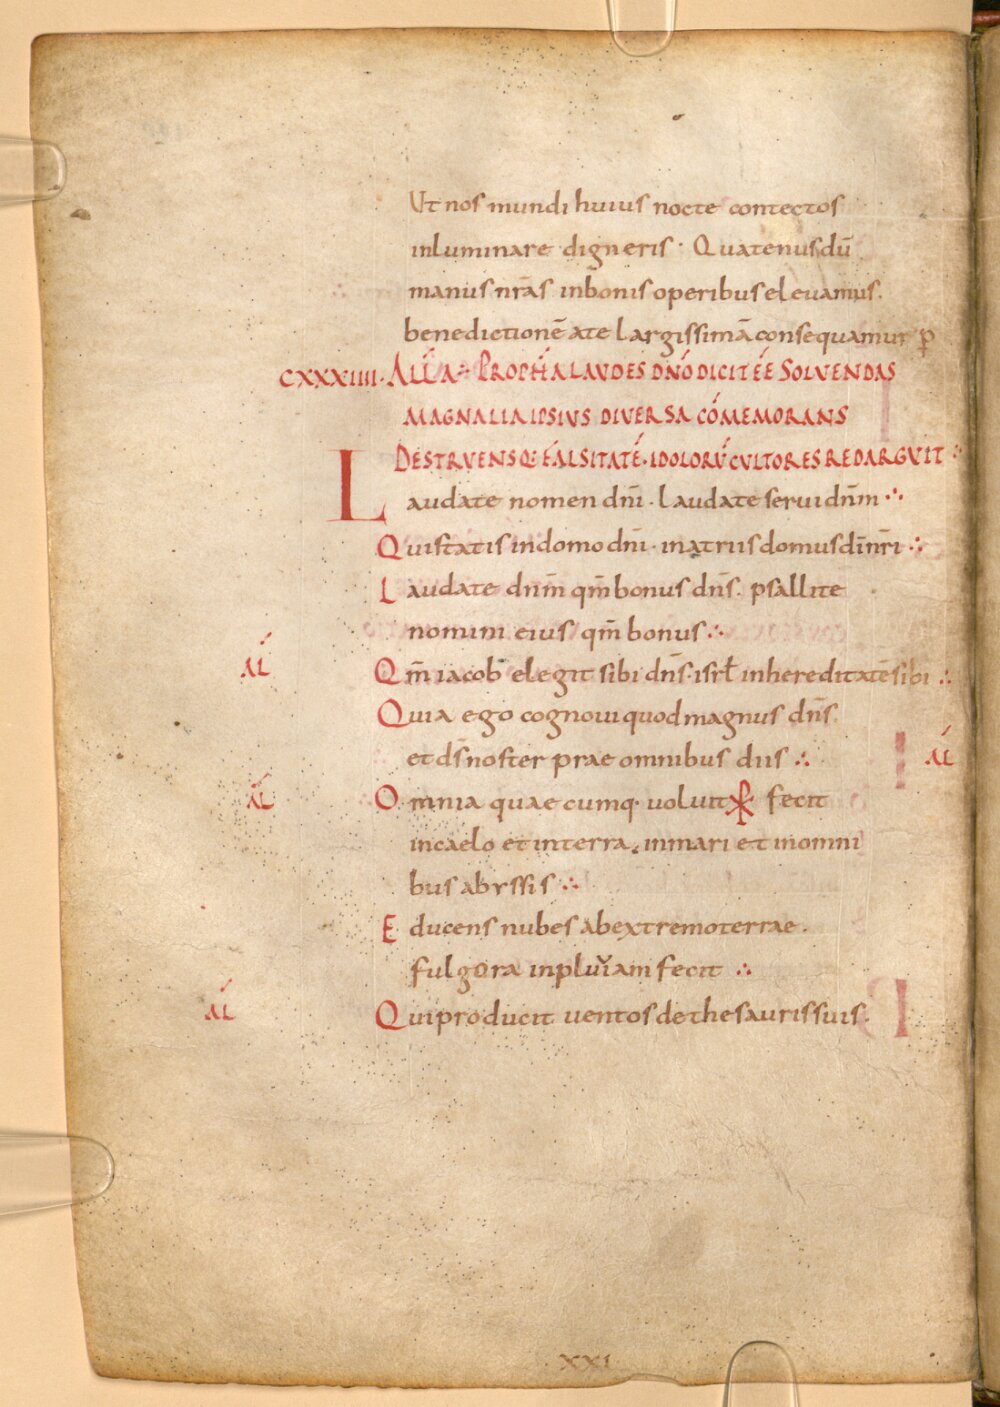 Ut nos mundi huius nocte contectos
inluminare digneris · Quatenus dū
manus nr̄as in bonis operibus elevamus.
benedictionē a te largissimā consequamur p̄
CXXXIIII. ALL̄A ∴ PROPH̄A LAUDES DN̄O DICIT ÉÉ SOLVENDAS
MAGNALIA IPSIUS DIVERSA CŌMEMORANS
DESTRUENSQ: FALSITATĒ · IDOLORŪ CULTORES REDARGUIT ∴
Laudate nomen dn̄i · Laudate servi dn̄m ∴
Qui statis in domo dn̄i · in atriis domus dī nr̄i ∴
Laudate dn̄m qm̄ bonus dn̄s. psallite
nomini eius qm̄ bonus ∴
AL Qm̄ iacob elegit sibi dn̄s · isrł in hereditatē sibi ∴
Quia ego cognovi quod magnus dn̄s.
et ds̄ noster prae omnibus diis ∴ AL
AL Omnia quaecumq· voluit ⳩ fecit
in caelo et in terra. in mari et in omni
bus abyssis ∴
Educens nubes ab extremo terrae.
fulgora in pluviam fecit ∴
AL Qui producit ventos de thesauris suis.
XXI